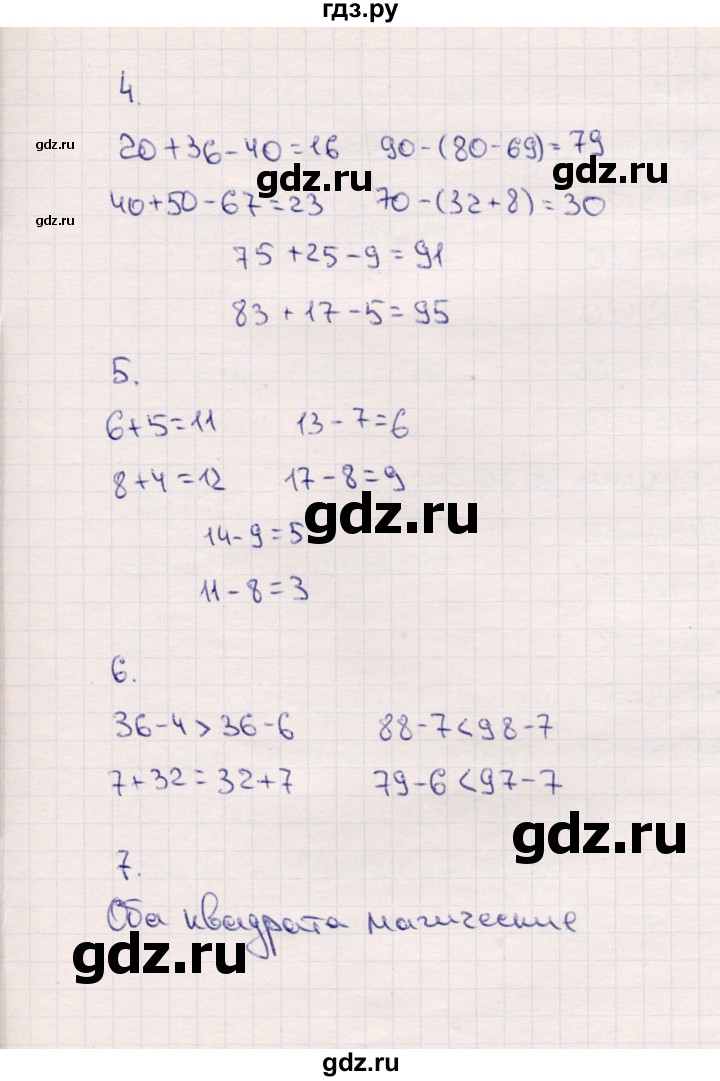 гдз.ру
4.
gdz.ru
20+36-40=16 90-(80-69)=79
gdz.ru gdz.ru
40+50-67=23 70-(32+8)=30
gdz.ru
75+25-9=91
83+17-5=95
5.
6+5=11 13-7=6
8+4=12 17-8=9
gdz.ru
14-9=5
11-8=3
6.
36-4>36-6 88-7<98-7
7+32=32+7 79-6<97-7
gdz.ru
7.
Оба квадрата магические
gdz.ru
gdz.ru